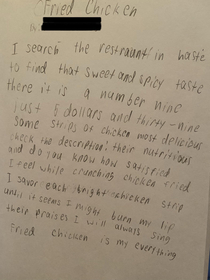 Fried Chicken
I search the restraunt in haste
to find that sweet and spicy taste
there it is a number nine
just 5 dollars and thirty-nine
some strips of chicken most delicious
check the description: their nutritious
and do you know how satisfied
I feel while crunching chicken fried
I savor each bright chicken strip
until it seems I might burn my lip
their praises I will always sing
fried chicken is my everything